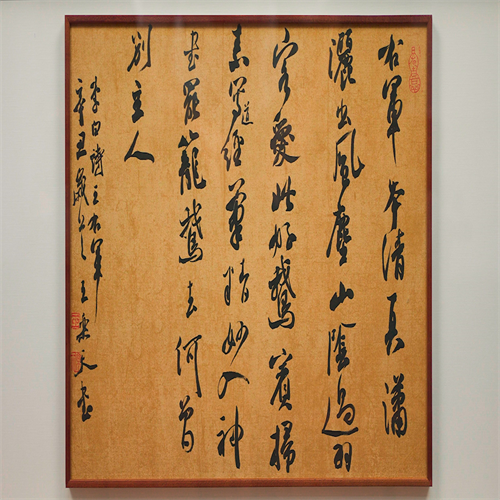 右軍本清真瀟
灑出風塵山陰過羽
客愛此好鵝賓掃
素寫道經筆精妙入神
書罷籠鵝去何曾
別主人
李白詩王右軍
辛丑歲王樂天書